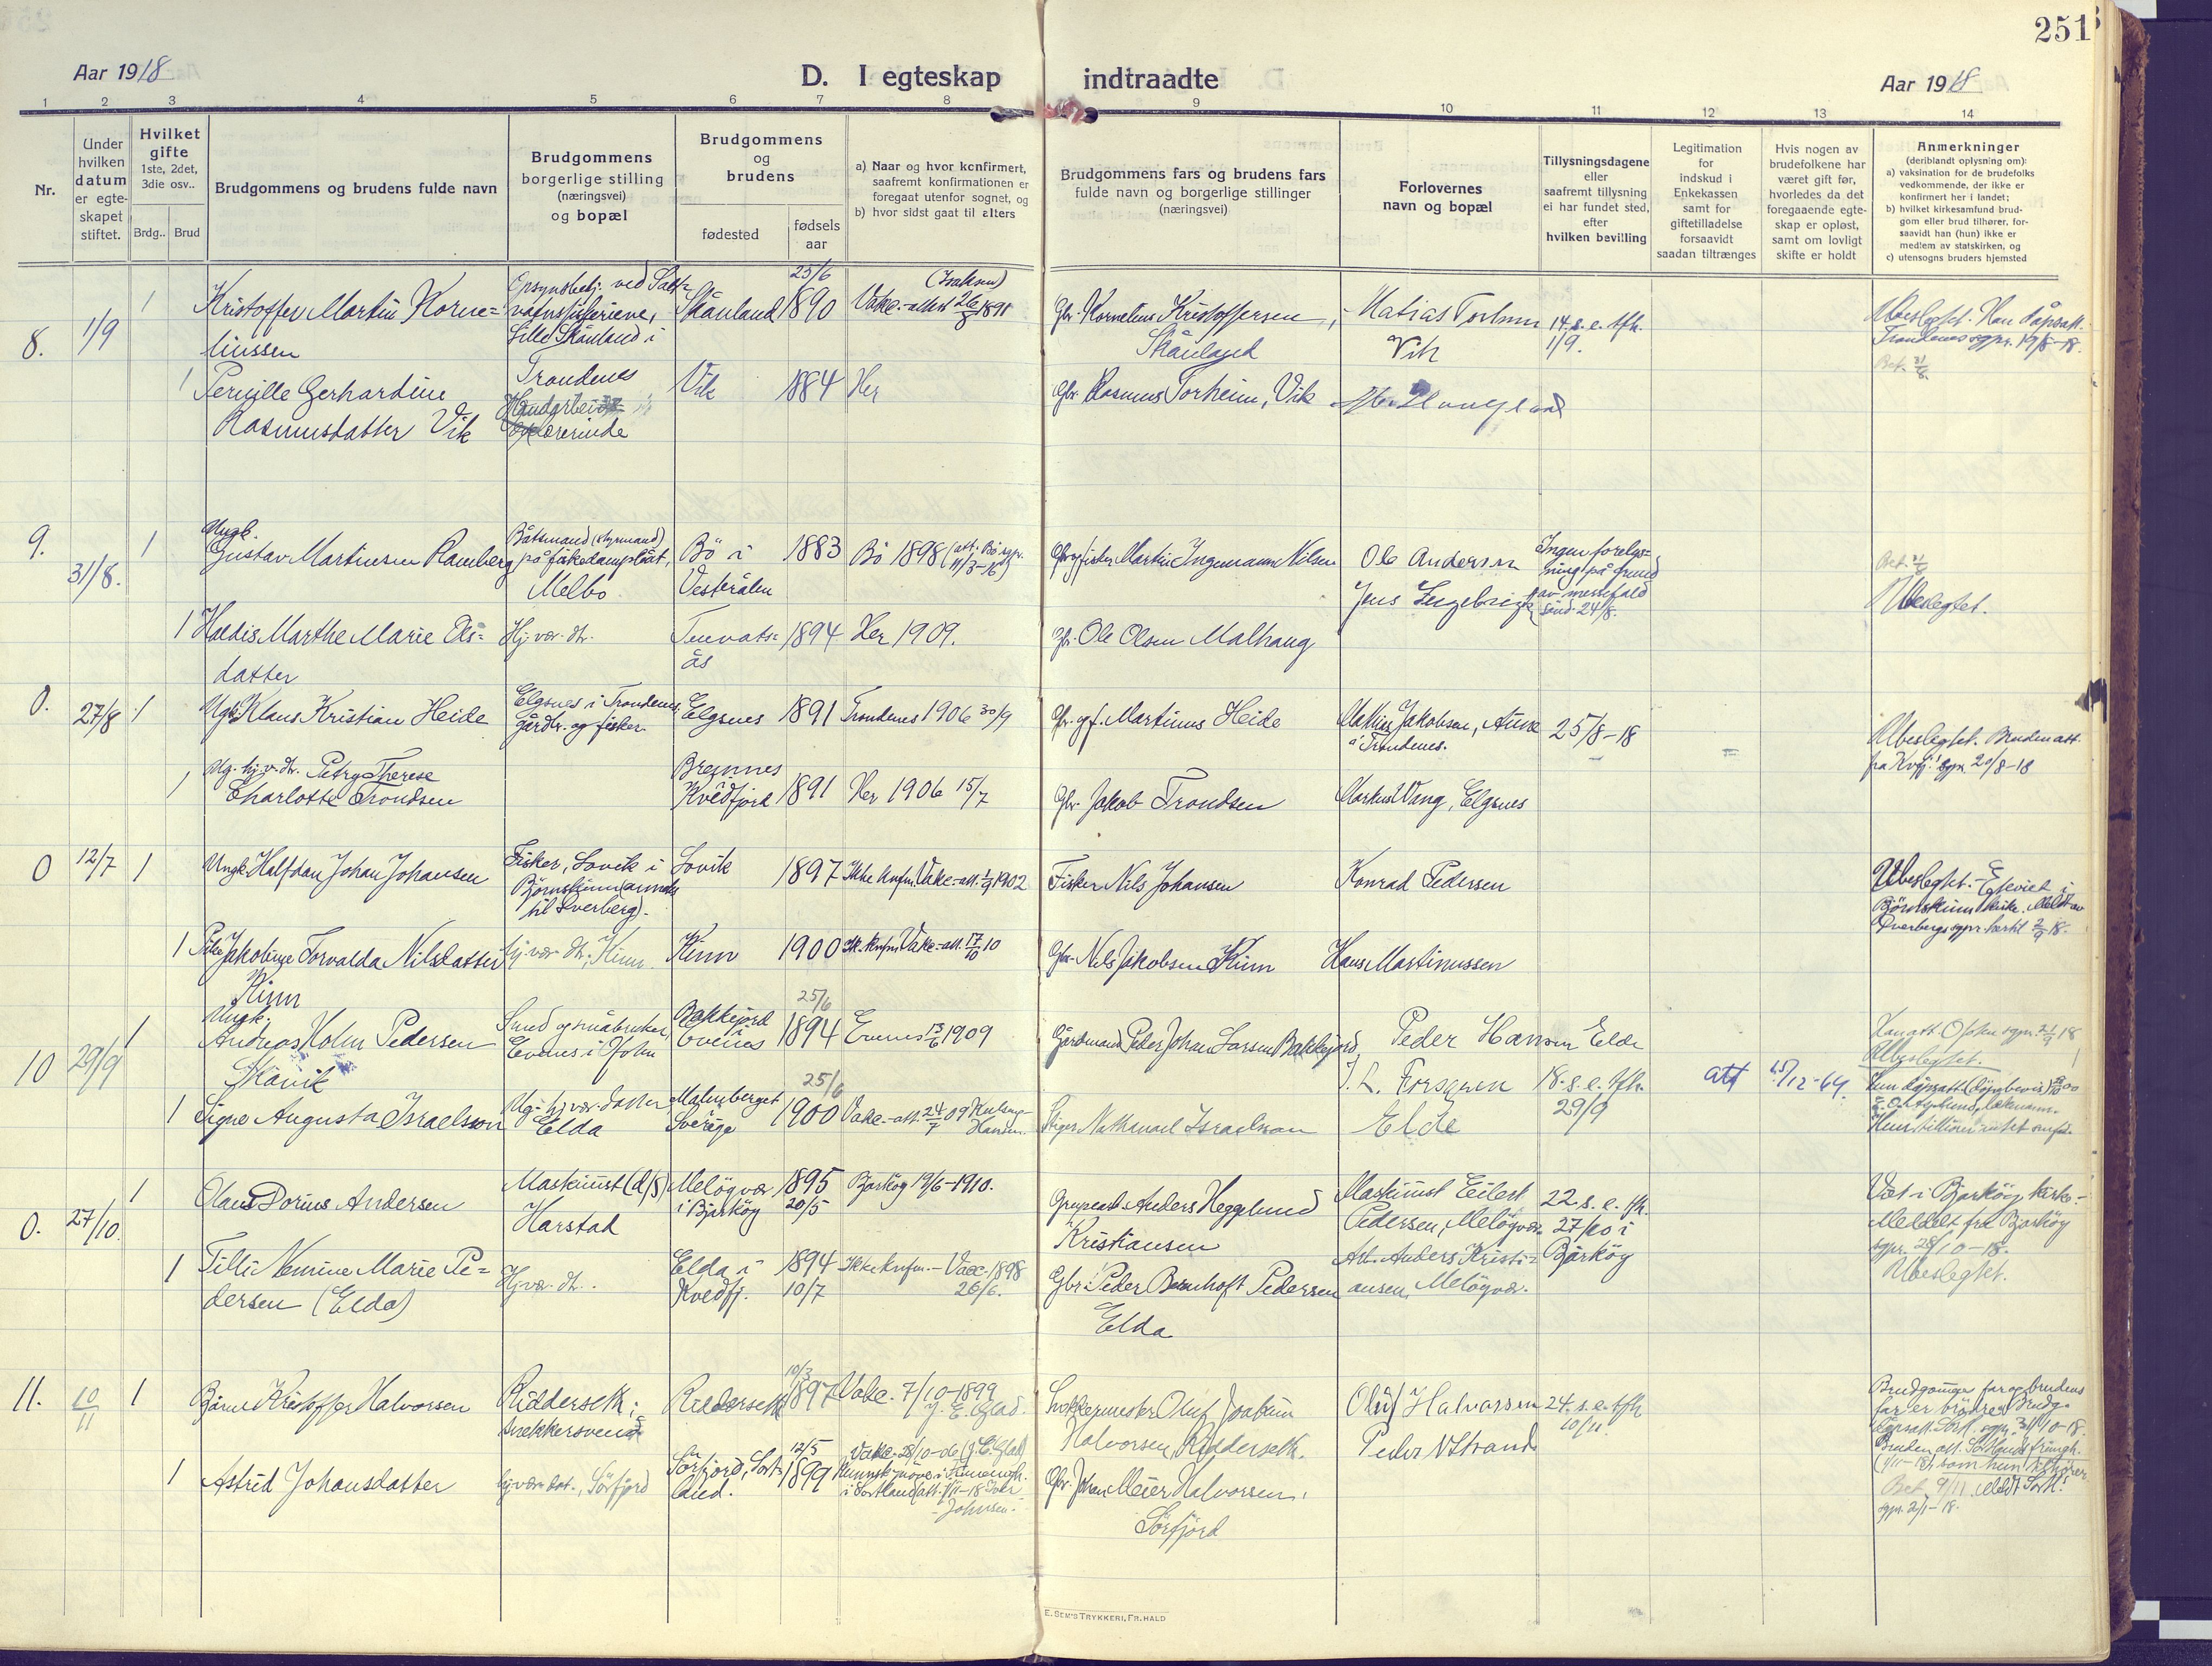 251
Aar 1918
D. I egteskap indtraadte
Aar 1918
1 2 3 4 5 6 7 8 9 10 11 12 13 14
Nr.
Under
hvilken
datum
er egte-
skapet
stiftet.
Hvilket
gifte
1ste, 2det,
3die osv..
Brdg..
Brud
Brudgommens og brudens fulde navn
Brudgommens
borgerlige stilling
(næringsvei)
og bopæl
Brudgommens
og
brudens
fødested
fødsels
aar
a) Naar og hvor konfirmert,
saafremt konfirmationen er
foregaat utenfor sognet, og
b) hvor sidst gaat til alters
Brudgommens fars og brudens fars
fulde navn og borgerlige stillinger
(næringsvei)
Forlovernes
navn og bopæl
Tillysningsdagene
eller
saafremt tillysning
ei har fundet sted,
efter
hvilken bevilling
Legitimation
for
indskud i
Enkekassen
samt for
giftetilladelse
forsaavidt
saadan tiltrænges
Hvis nogen av
brudefolkene har
været gift før,
hvorledes da det
foregaaende egte-
skap er opløst,
samt om lovligt
skifte er holdt
Anmerkninger
(deriblandt oplysning om):
a) vaksination for de brudefolks
vedkommende, der ikke er
konfirmert her i landet;
b) hvilket kirkesamfund brud-
gom eller brud tilhører, for-
saavidt han (hun) ikke er
medlem av statskirken, og
c) utensogns bruders hjemsted
8.
1/9
1
Kristoffer Martin Korne=
liussen
Lille Skånland i
Trondenes
Skånland
25/6
1890
(Isaksen)
Gbr. Kornelius Kristoffersen,
Skånland
Matias Torheim
Vik
14. s. e. tfh.
1/9.
Ubeslegtet. Han dåpsatt.
Trondenes sgpr. 19/8-18.
1
Pernille Gerhardine
Rasmusdatter Vik
Vik
1884
Her
Gbr. Rasmus Torheim, Vik
9.
31/8.
1
Ungk.
Gustav Martinsen Ramberg
Båtsmand (styrmand)
på fiskedampbåt,
Melbo
Bö i
Vesterålen
1883
Bö 1898 (att. Bö sgpr.
11/3-16)
Gbr. og fisker Martin Ingemann Nilsen
Ole Andersen
Jens Ingebrigts
Ingen forelys=
ning på grund
av messefald
sönd. 24/8.
Ubeslegtet.
1
Haldis Marthe Marie Ols=
datter
Hj. vær. dtr.
Tenvats=
ås
1894
Her 1909.
Gbr. Ole Olsen Malhaug
0.
27/8
1
Ugk. Klaus Kristian Heide
Elgsnes i Trondenes
Gårdbr. og fisker
Elgsnes
1891
Trondenes 1906 30/9
Gbr. og f. Martinus Heide
Mathias Jakobsen, Aune
i Trondenes.
25/8-18
Ubeslegtet. Bruden att.
fra Kvfj. sgpr. 20/8-18
1
Ug. hj. v. dtr. Petry Therese
Charlotte Trondsen
Bremnes
Kvedfjord
1891
Her 1906 15/7
Gbr. Jakob Trondsen
Markus Wang, Elgsnes
0
12/7
1
Ungk. Halfdan Johan Johansen
Fisker, Lovik i
Björnskinn (annek
til Dverberg).
Lovik
1897
Ikke knfm. Vakc.-att. 1/9 1902
Fisker Nils Johansen
Konrad Pedersen
Ubeslegtet. – Egteviet i
Björnskinn kirke. Meldt av
Dverberg sgpr. hertil 2/9 18.
1
Pike Jakobine Torvalda Nilsdatter
Kinn
hj. vær. dtr., Kinn
Kinn
1900
Ik. knfm. Vakc.-att. 17/10 10
Gbr. Nils Jakobsen Kinn
Hans Martinussen
10
29/9
1
Ungk.
Andreas Holm Pedersen
Skavik
Smed og småbruker
Evenes i Ofoten
Bakkejord
i
Evenes
25/6
1894
Evenes 13/6 1909
Gårdmand Peder Johan Larsen Bakkejord
Peder Hansen Elde
Han att. Ofoten sgpr. 21/9 18
Ubeslegtet.
1
Signe Augusta Israelsson
Ug. hj. vær. datter
Elda
Malmberget
Sverige
25/6
1900
Vakc.-att. 24/7 09
Stiger Nathanael Israelsson
J. L. Forsgren
Elde
18. s. e. tfh.
29/9
att
15/12-64.
0.
27/10.
1
Olaus Dorius Andersen
Maskinist (d/s)
Harstad
Melögvær
i Bjarköy
1895
20/5
Bjarköy 19/6-1910.
Anders Hegglund
Kristiansen
Maskinist Eilert
Pedersen, Melögvær
Arb. Anders Kristi=
ansen, Melögvær.
22. s. e. tfh.
27/10 i
Bjarköy
Viet i Bjarköy kirke.
Meldelt fra Bjarköy
sgpr. 28/10-18.
Ubeslegtet.
1
Tilli Nemine Marie Pe=
dersen (Elda)
Hj. vær. dtr.
Elda i
Kvedfj.
1894
10/7
Ikke knfm. – Vacc. 1898
26/6.
Gbr. Peder Bernhoft Pedersen
Elda
11.
10/11
1
Bjarne Kristoffer Halvorsen
Riddersetk;
Snekkersvend
Riddersetk
10/3
1897
Vakc. 7/10-1899
J. E. Glad.
Snekkermester Oluf Joakim
Halvorsen, Riddersetk.
Oluf Halvorsen
Peder N Strand
24. s. e. tfh
10/11
Brudgommens far og brudens
far er brödre. Brudg.
dåpsatt. Sortl. sgpr. 31/10-18.
1
Astrid Johansdatter
hj. vær. dat., Sörfjord
Sörfjord, Sort=
land.
12/5
1899
Vakc. 28/10-06 (J. E. Glad)
i Sortland
Johnsen.
Gbr. Johan Meier Halvorsen,
Sörfjord
Bet. 9/11. Meldt Sortl.
E. SEM'S TRYKKERI, FR.HALD